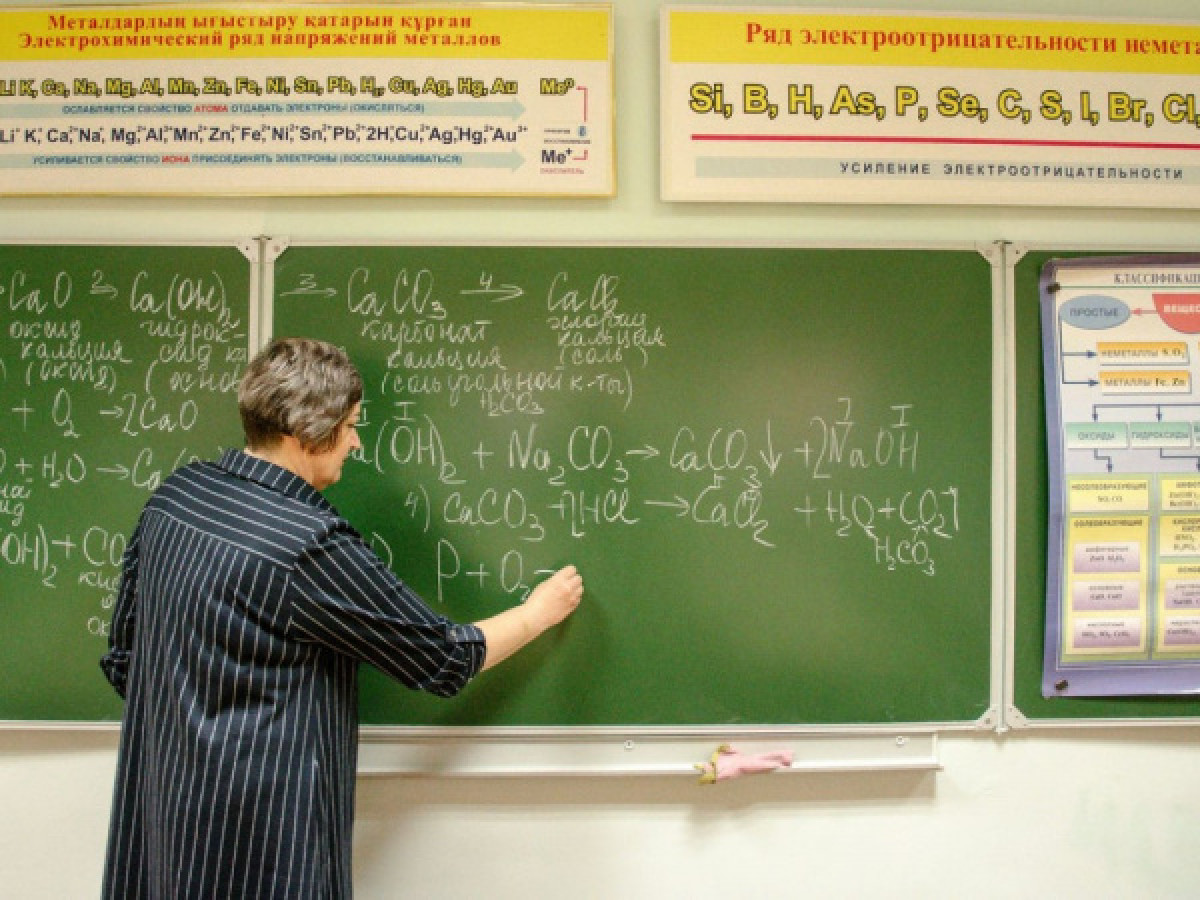 Металдардың ығыстыру қатарын құрған
Электрохимический ряд напряжений металлов
Li K, Ca, Na, Mg, Al, Mn, Zn, Fe, Ni, Sn, Pb, H₂, Cu, Ag, Hg, Au Me⁰
ОСЛАБЛЯЕТСЯ СВОЙСТВО АТОМА ОТДАВАТЬ ЭЛЕКТРОНЫ (ОКИСЛЯТЬСЯ)
Li⁺ K⁺, Ca²⁺ Na⁺, Mg²⁺ Al³⁺ Mn²⁺ Zn²⁺ Fe²⁺ Ni²⁺ Sn²⁺ Pb²⁺ 2H⁺, Cu²⁺, Ag⁺, Hg²⁺ Au³⁺
УСИЛИВАЕТСЯ СВОЙСТВО ИОНА ПРИСОЕДИНЯТЬ ЭЛЕКТРОНЫ (ВОССТАНАВЛИВАТЬСЯ) Me⁺
Ряд электроотрицательности немета
Si, B, H, As, P, Se, C, S, I, Br, Cl,
УСИЛЕНИЕ ЭЛЕКТРООТРИЦАТЕЛЬНОСТИ
CaO 2→ Ca(OH)₂
оксид гидрок-
кальция сид ка
(оксид) (основ
+ O₂ → 2CaO
+ H₂O → Ca
OH)₂ + CO
3→ CaCO₃ 4→ CaCl₂
карбонат хлорид
кальция кальция
(соль угольной к-ты) (соль)
H₂CO₃
II I I I
a(OH)₂ + Na₂CO₃ → CaCO₃↓ + 2NaOH
4) CaCO₃ + 2HCl → CaCl₂ + H₂O + CO₂↑
H₂CO₃
) P + O₂ −
КЛАССИФИКАЦ
ПРОСТЫЕ ВЕЩЕС
НЕМЕТАЛЛЫ S, O₂
МЕТАЛЛЫ Fe, Zn
ОКСИДЫ ГИДРОКСИДЫ
НЕСОЛЕОБРАЗУЮЩИЕ
NO, CO
СОЛЕОБРАЗУЮЩИЕ